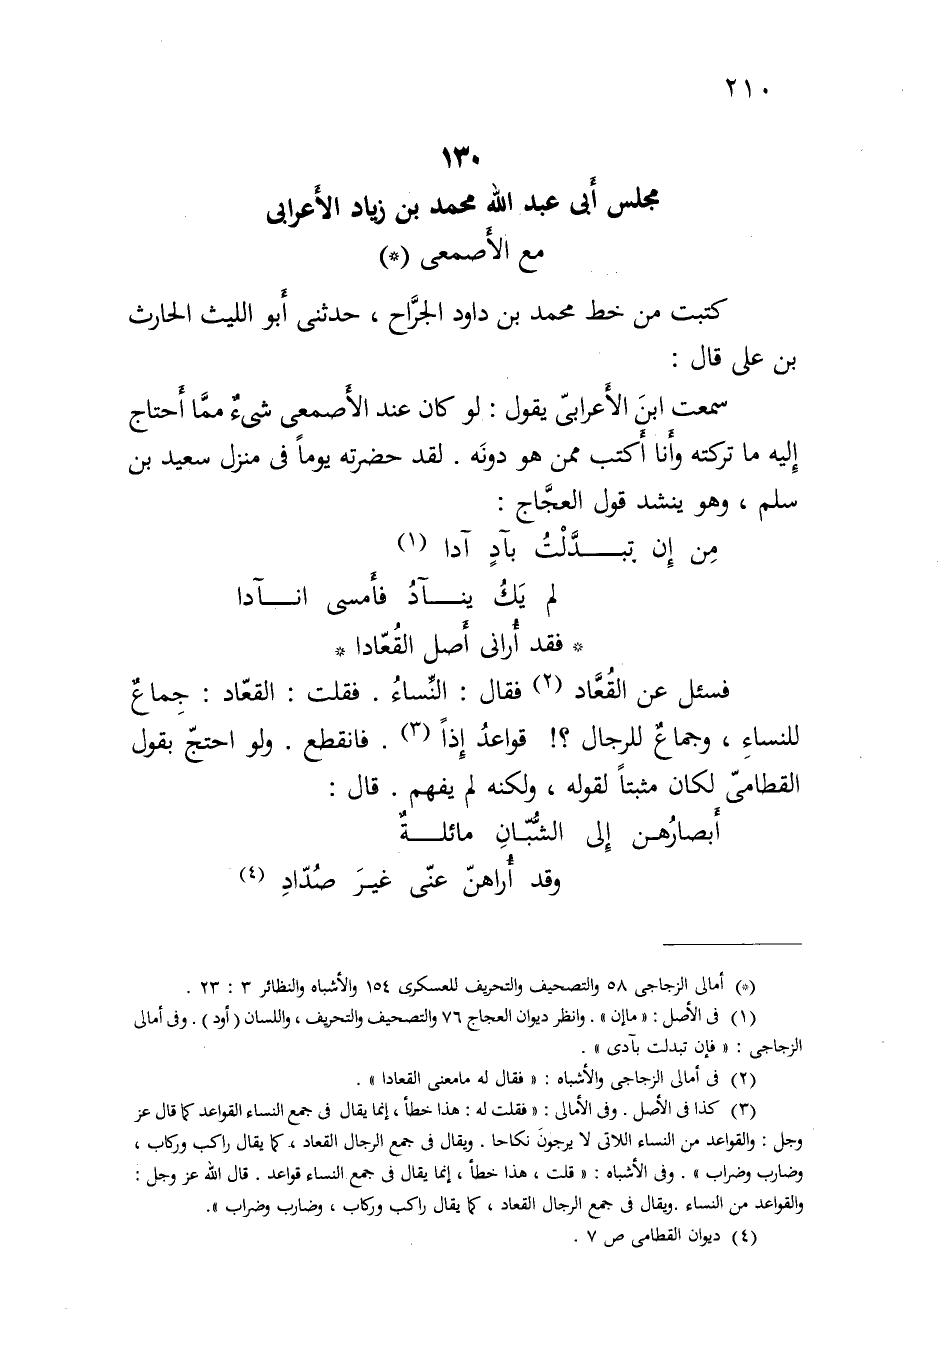 ٢١٠
١٣٠
مجلس أبى عبد الله محمد بن زياد الأعرابى
مع الأصمعى (*)
كتبت من خط محمد بن داود الجرَّاح ، حدثنى أبو الليث الحارث
بن على قال :
سمعت ابنَ الأعرابىّ يقول : لو كان عند الأصمعى شىءٌ ممَّا أحتاج
إليه ما تركته وأنا أكتب ممن هو دونَه . لقد حضرته يوماً فى منزل سعيد بن
سلم ، وهو ينشد قول العجَّاج :
مِن إن تبـــدَّلْتُ بآدٍ آدا (١)
لم يَكُ ينـــآدُ فأمسى انـــآدا
* فقد أُرانى أصل القُعّادا *
فسئل عن القُعَّاد (٢) فقال : النِّساءُ . فقلت : القعّاد : جِماعٌ
للنساءِ ، وجماعٌ للرجال ؟! قواعدُ إذاً (٣) . فانقطع . ولو احتجّ بقول
القطامىّ لكان مثبتاً لقوله ، ولكنه لم يفهم . قال :
أبصارُهـن إلى الشُّبّانِ مائلـــةٌ
وقد أُراهنّ عنّى غيـرَ صُدّادِ (٤)
(*) أمالى الزجاجى ٥٨ والتصحيف والتحريف للعسكرى ١٥٤ والأشباه والنظائر ٣ : ٢٣ .
(١) فى الأصل : « ماإن » . وانظر ديوان العجاج ٧٦ والتصحيف والتحريف ، واللسان ( أود ) . وفى أمالى
الزجاجى : « فإن تبدلت بآدى » .
(٢) فى أمالى الزجاجى والأشباه : « فقال له مامعنى القعادا » .
(٣) كذا فى الأصل . وفى الأمالى : « فقلت له : هذا خطأ ، إنما يقال فى جمع النساء القواعد كما قال عز
وجل : والقواعد من النساء اللاتى لا يرجونَ نكاحا . ويقال فى جمع الرجال القعاد ، كما يقال راكب وركاب ،
وضارب وضراب » . وفى الأشباه : « قلت ، هذا خطأ ، إنما يقال فى جمع النساء قواعد . قال الله عز وجل :
والقواعد من النساء . ويقال فى جمع الرجال القعاد ، كما يقال راكب وركاب ، وضارب وضراب ».
(٤) ديوان القطامى ص ٧ .